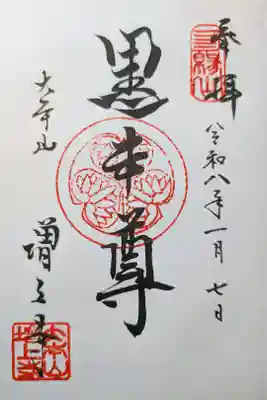 奉拝
令和八年一月七日
黒本尊
大本山
増上寺